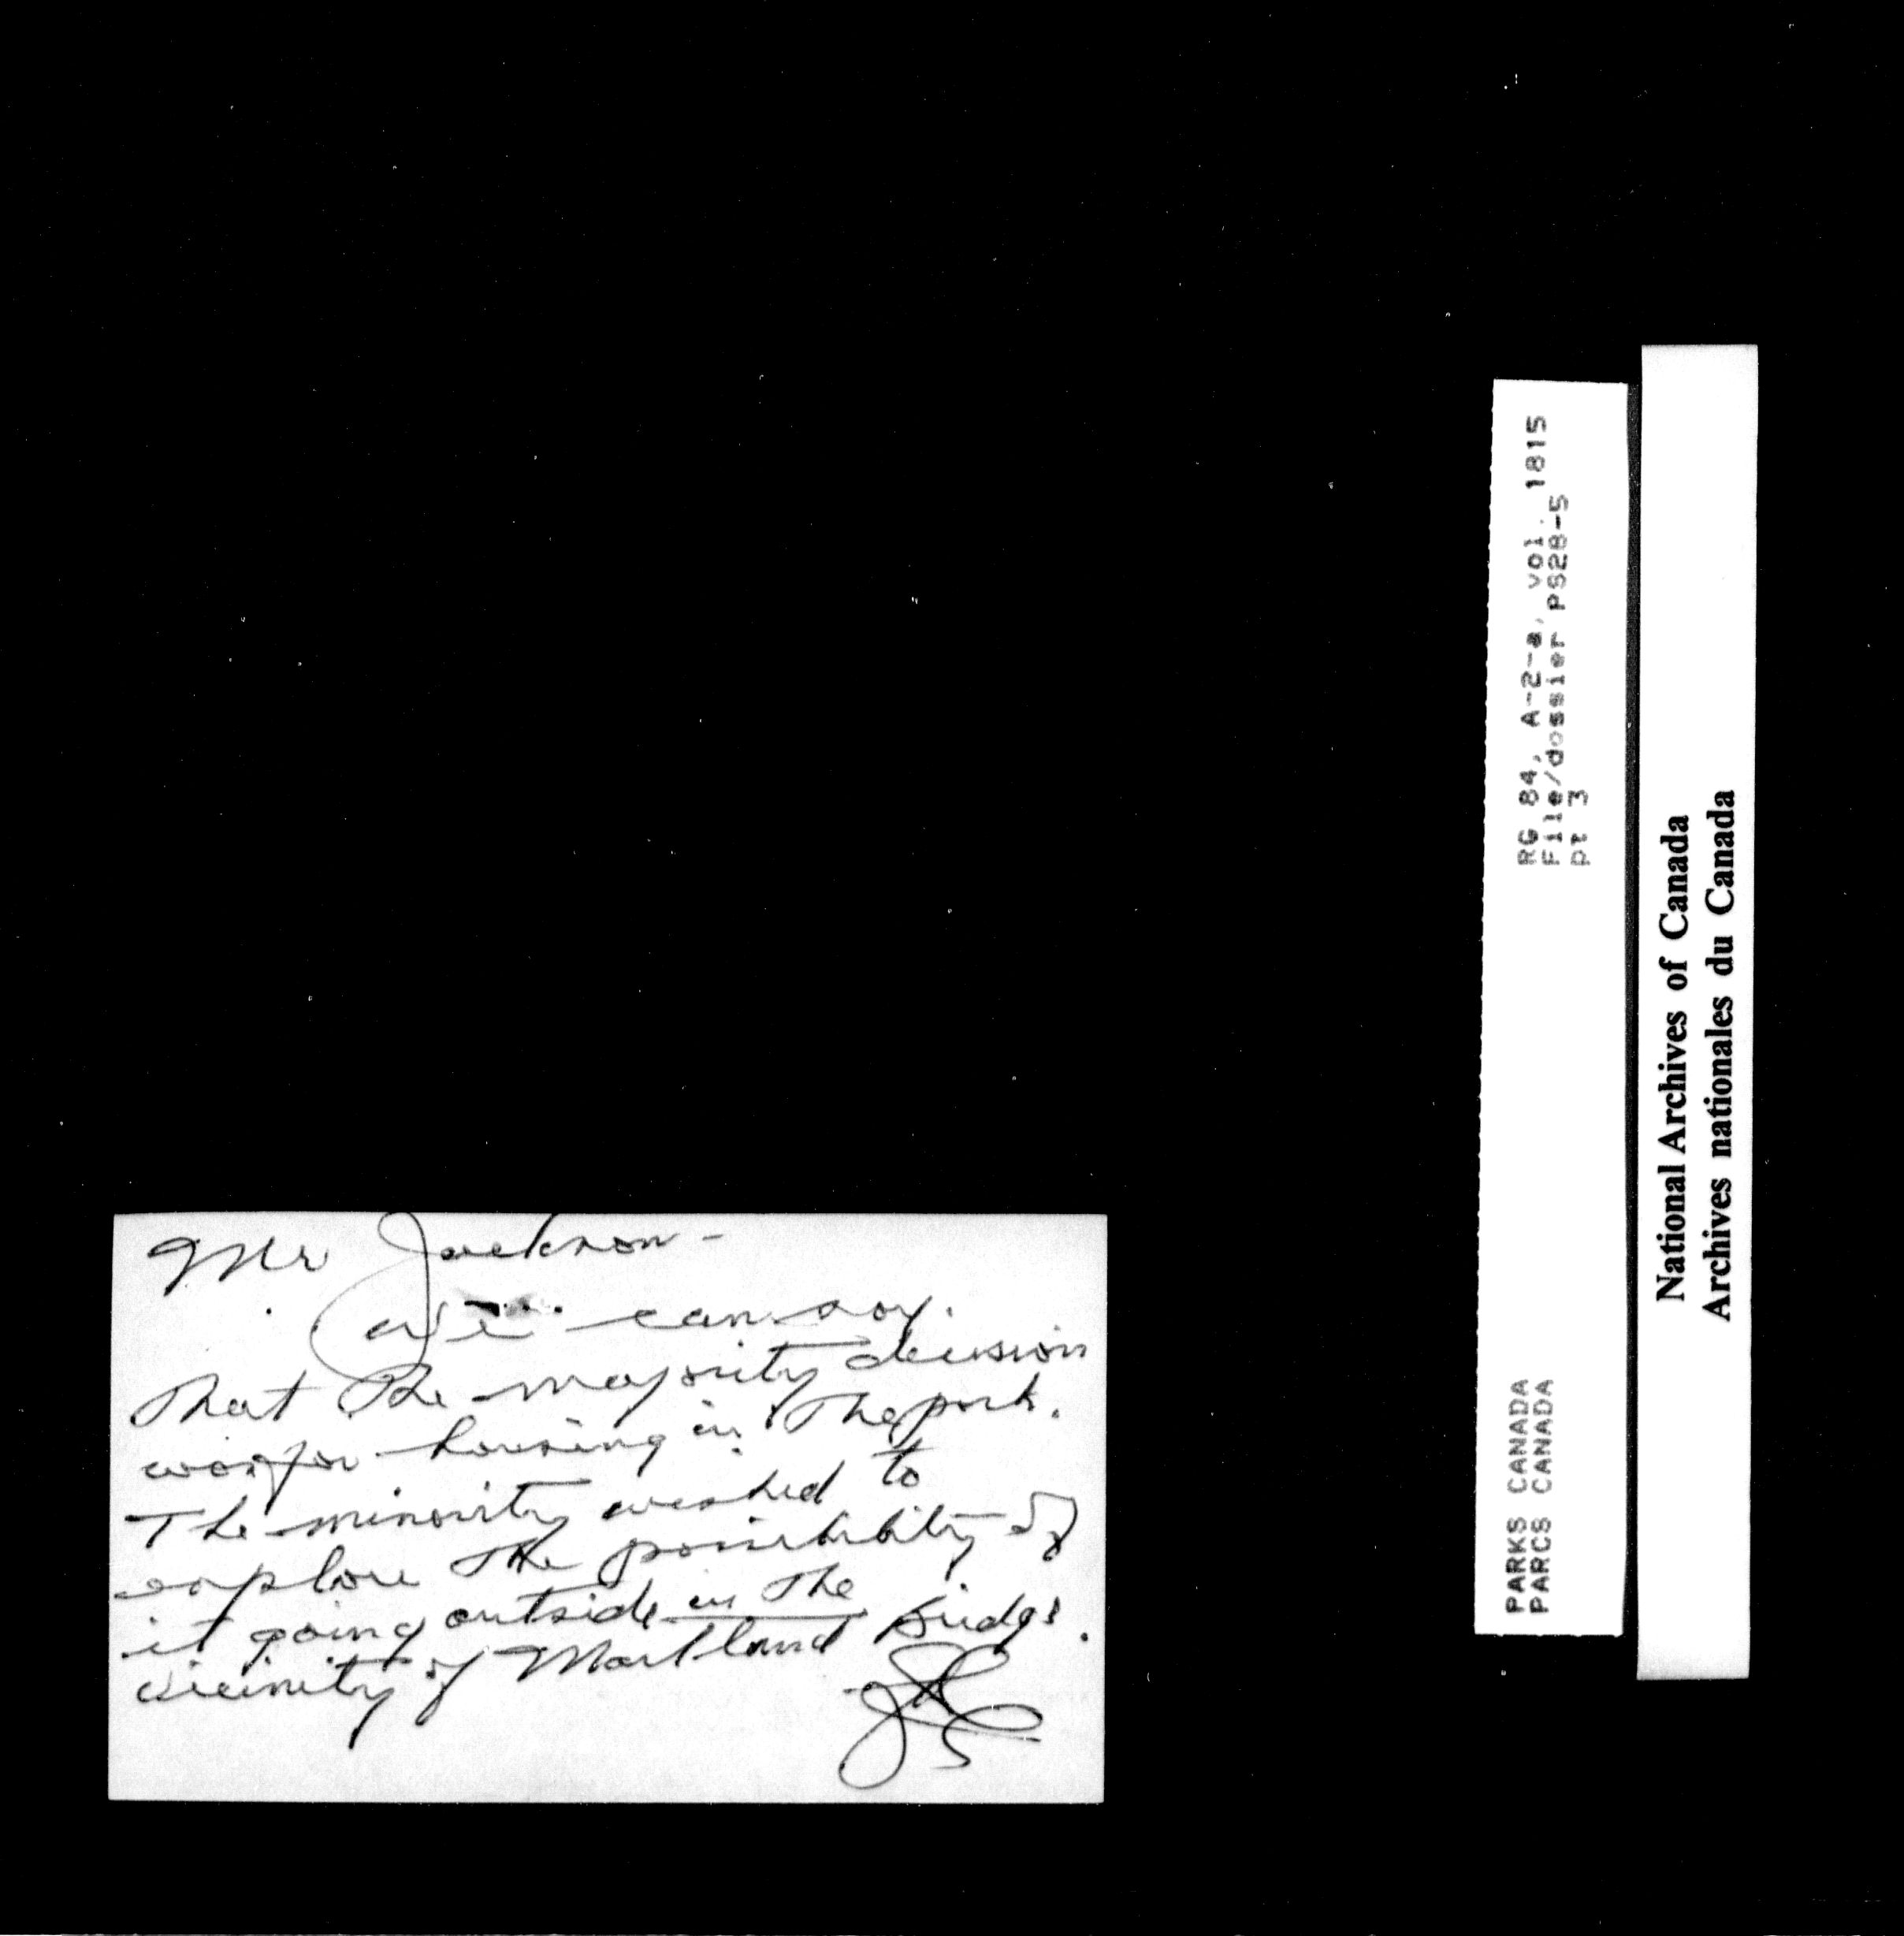 Mr Jackson -
We can say
that the majority decision
was for housing in the park.
The minority wished to
explore the possibility of
it going outside in the
vicinity of Maitland Bridge.
RG 84, A-2-a, vol. 1815
File/dossier PS28-5
pt 3
PARKS CANADA
PARCS CANADA
National Archives of Canada
Archives nationales du Canada